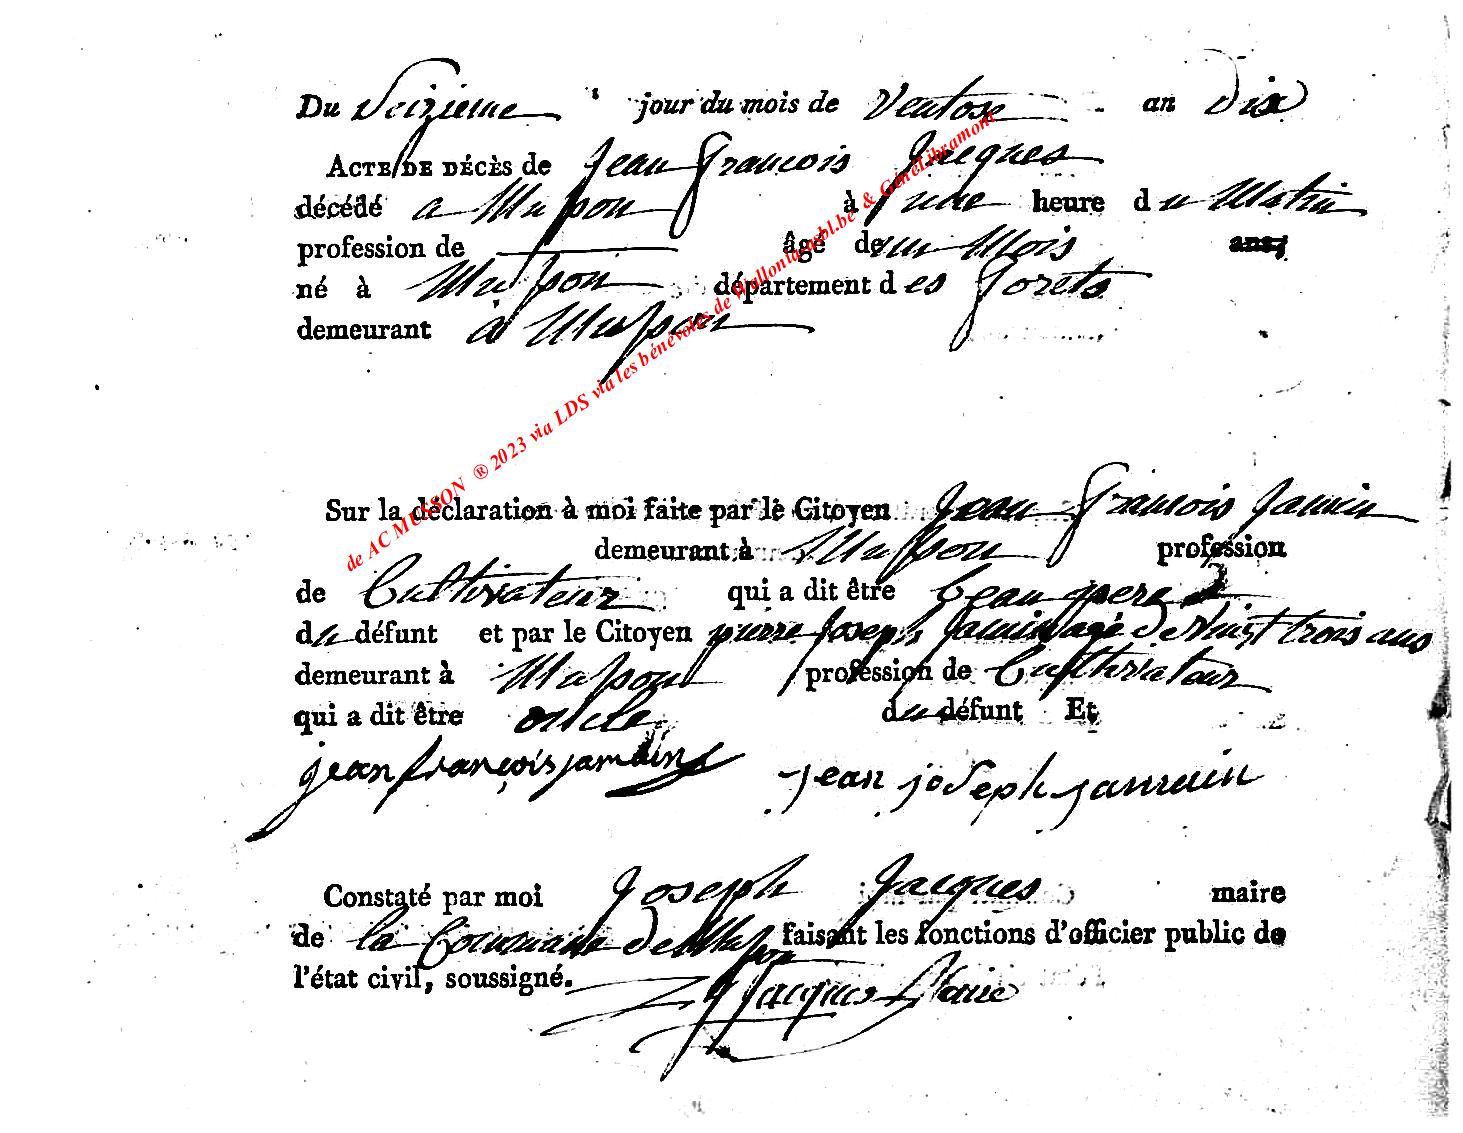 Du Seizieme jour du mois de Ventose an dix
ACTE DE DÉCÈS de Jean François Jacques
décédé a Musson à une heure du Matin
profession de âgé de un Mois ans,
né à Musson département des Forets
demeurant à Musson
Sur la déclaration à moi faite par le Citoyen Jean François Jamin
demeurant à Musson profession
de Cultivateur qui a dit être beau pere
du défunt et par le Citoyen pierre Joseph Jamin agé de Vingt trois ans
demeurant à Musson profession de Cultivateur
qui a dit être oncle du défunt Et
jean françois jamain jean joseph jamain
Constaté par moi Joseph Jacques maire
de la Commune de Musson faisant les fonctions d'officier public de
l'état civil, soussigné. Jacques Maire
de AC MUSSON ® 2023 via LDS via les bénévoles de Wallonia asbl.be & GénéLibramont